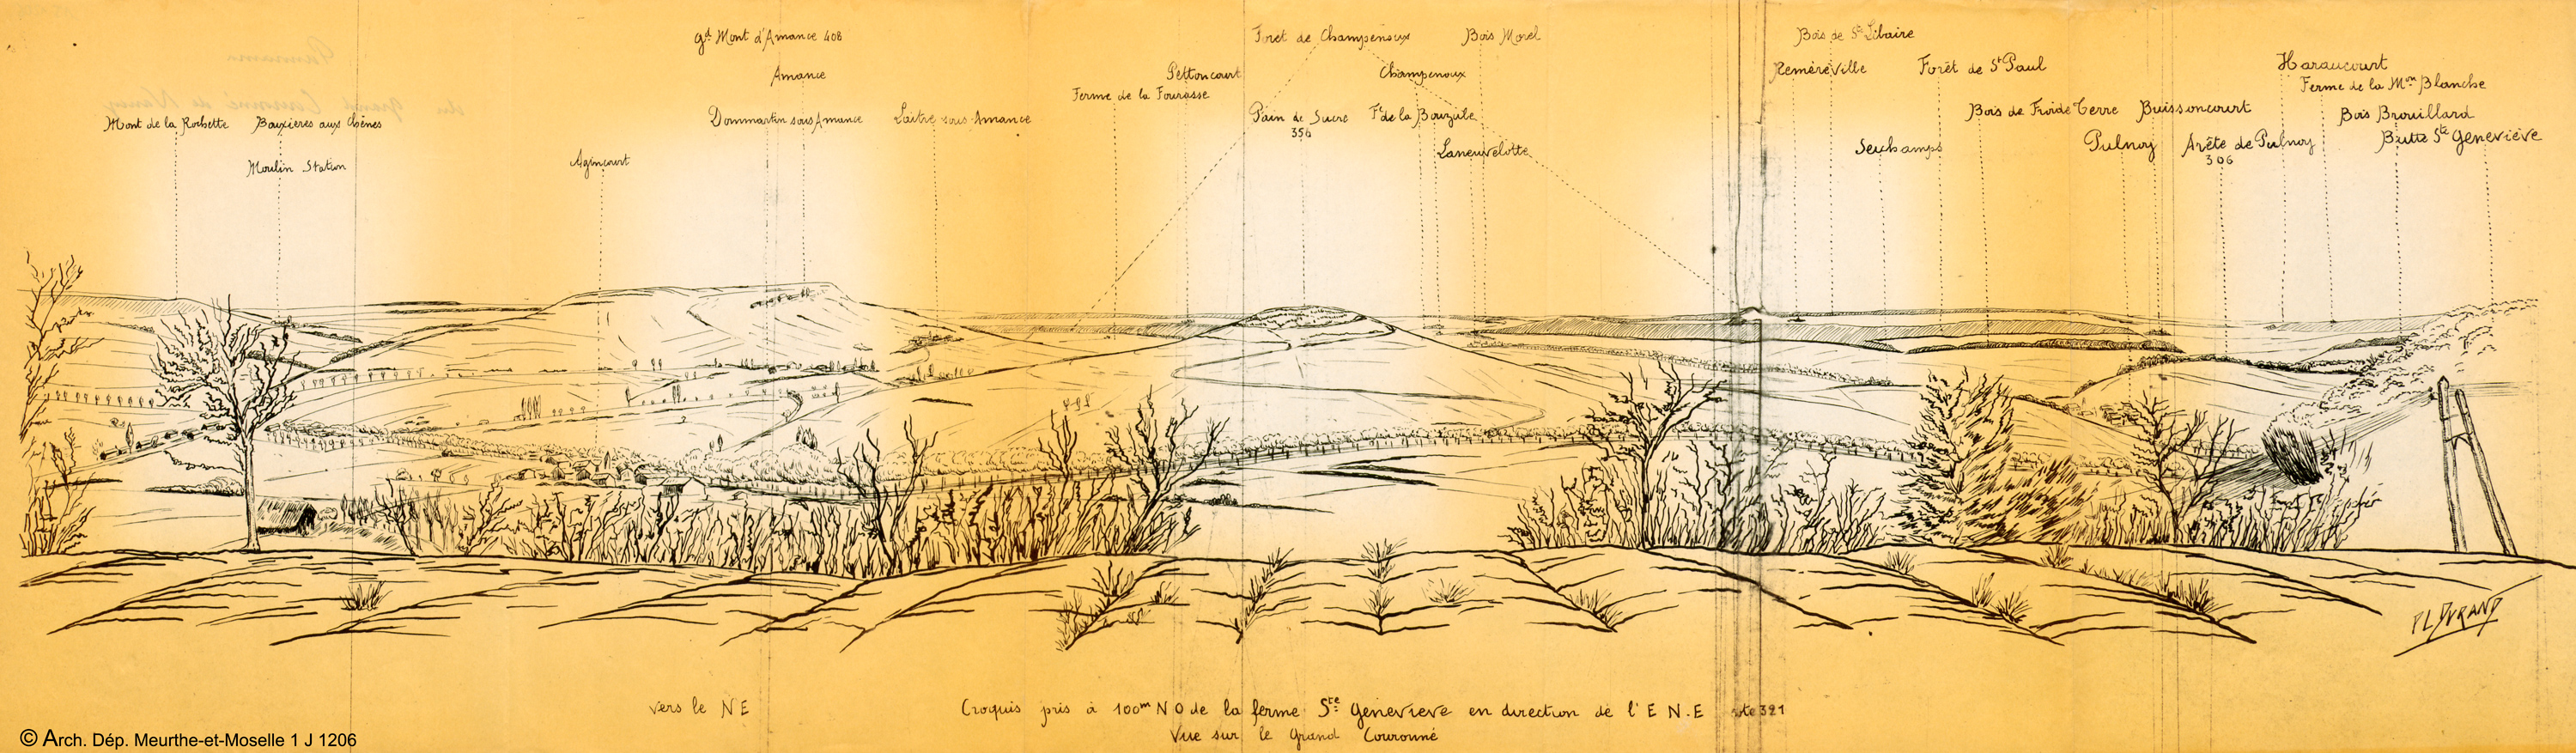 Gd Mont d'Amance 408
Forêt de Champenoux
Bois Morel
Bois de St Libaire
Amance
Pettoncourt
Champenoux
Remèréville
Forêt de St Paul
Haraucourt
Ferme de la Fourasse
Ferme de la Mon Blanche
Mont de la Rochette
Bouxieres aux Chênes
Dommartin sous Amance
Laître sous Amance
Pain de Sucre
356
Ft de la Bouzule
Bois de Froide Terre
Buissoncourt
Bois Brouillard
Moulin Station
Agincourt
Laneuvelotte
Seichamps
Pulnoy
Arête de Pulnoy
306
Butte Ste Geneviève
PL DURAND
vers le NE
Croquis pris à 100m NO de la ferme Ste Geneviève en direction de l'E N.E cote 321
Vue sur le Grand Couronné
© Arch. Dép. Meurthe-et-Moselle 1 J 1206